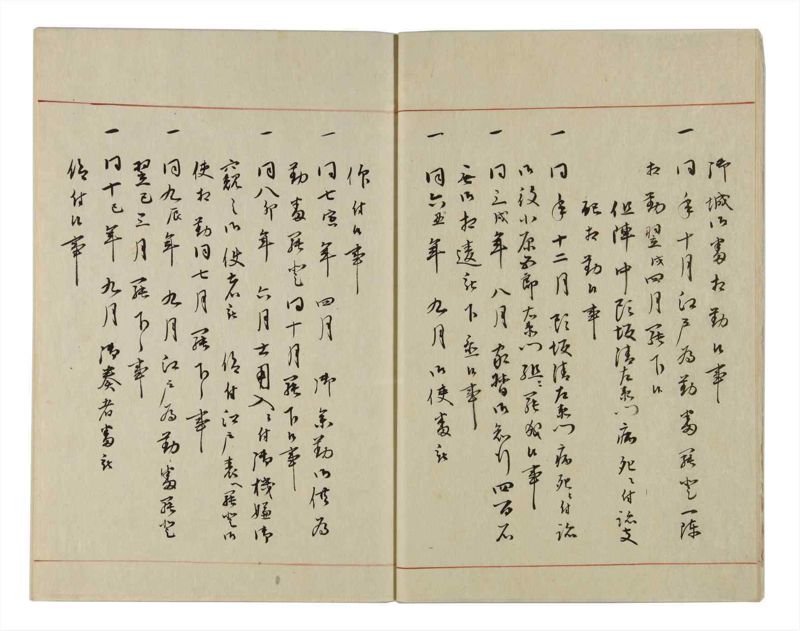 御城御番相勤候事
一 同年十月江戸為勤番罷登一陣
相勤翌戌四月罷下候
但陣中 坂清左衛門病死ニ付諸支
配相勤候事
一 同年十二月 坂清左衛門病死ニ付諸
御役小原五郎左衛門組ニ罷成候事
一 同三戌年八月家督御知行四百石
無御相違被下置候事
一 同六丑年九月御使番被
仰付候事
一 同七寅年四月御参勤御供為
勤番罷登同十月罷下候事
一 同八卯年六月土用入ニ付御機嫌御
窺之御使者被 仰付江戸表へ罷登御
使相勤同七月罷下候事
一 同九辰年九月江戸為勤番罷登
翌巳三月罷下候事
一 同十巳年九月御奏者番被
仰付候事